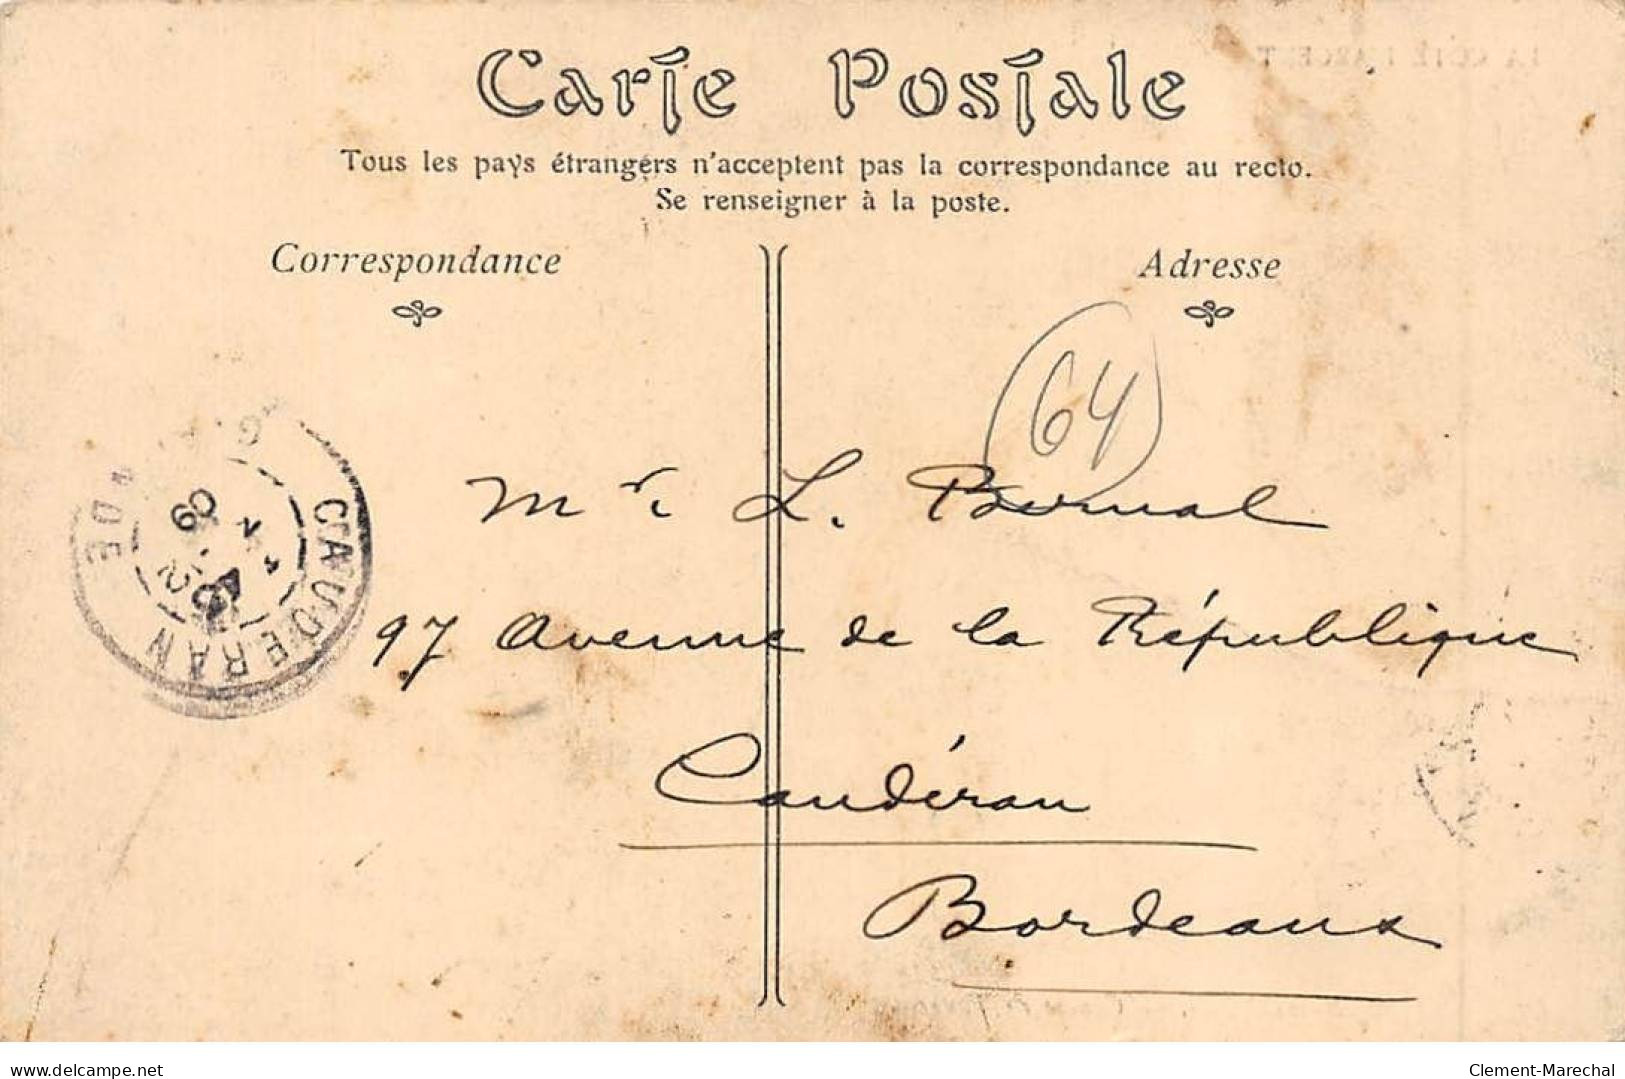 Carte Postale
Tous les pays étrangers n'acceptent pas la correspondance au recto.
Se renseigner à la poste.
Correspondance
Adresse
64
Mr L. Bernal
97 Avenue de la République
Caudéran
Bordeaux
CAUDERAN
www.delcampe.net
Clement-Marechal